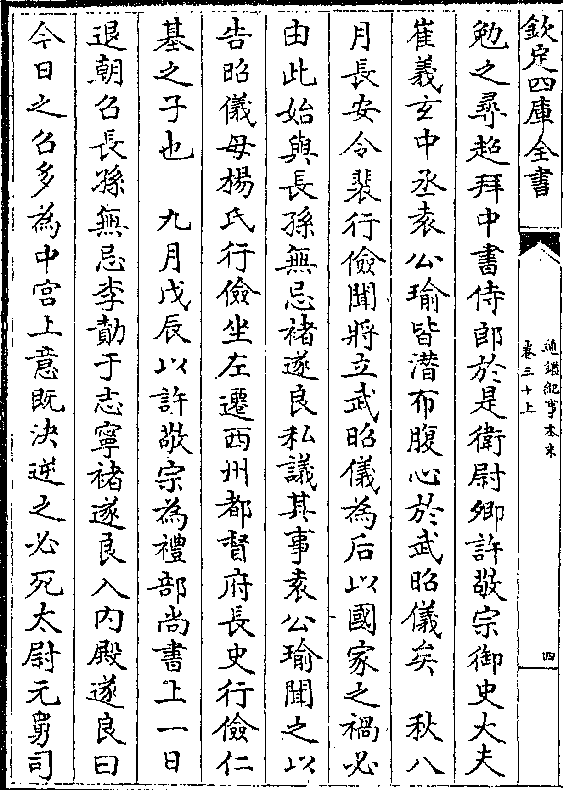 欽定四庫全書
通鑑紀事本末
卷三十上
四
勉之尋超拜中書侍郎於是衛尉卿許敬宗御史大夫
崔義玄中丞袁公瑜皆潛布腹心於武昭儀矣　秋八
月長安令裴行儉聞將立武昭儀為后以國家之禍必
由此始與長孫無忌褚遂良私議其事袁公瑜聞之以
告昭儀母楊氏行儉坐左遷西州都督府長史行儉仁
基之子也　九月戊辰以許敬宗為禮部尚書上一日
退朝召長孫無忌李勣于志寧褚遂良入內殿遂良曰
今日之召多為中宮上意既決逆之必死太尉元舅司